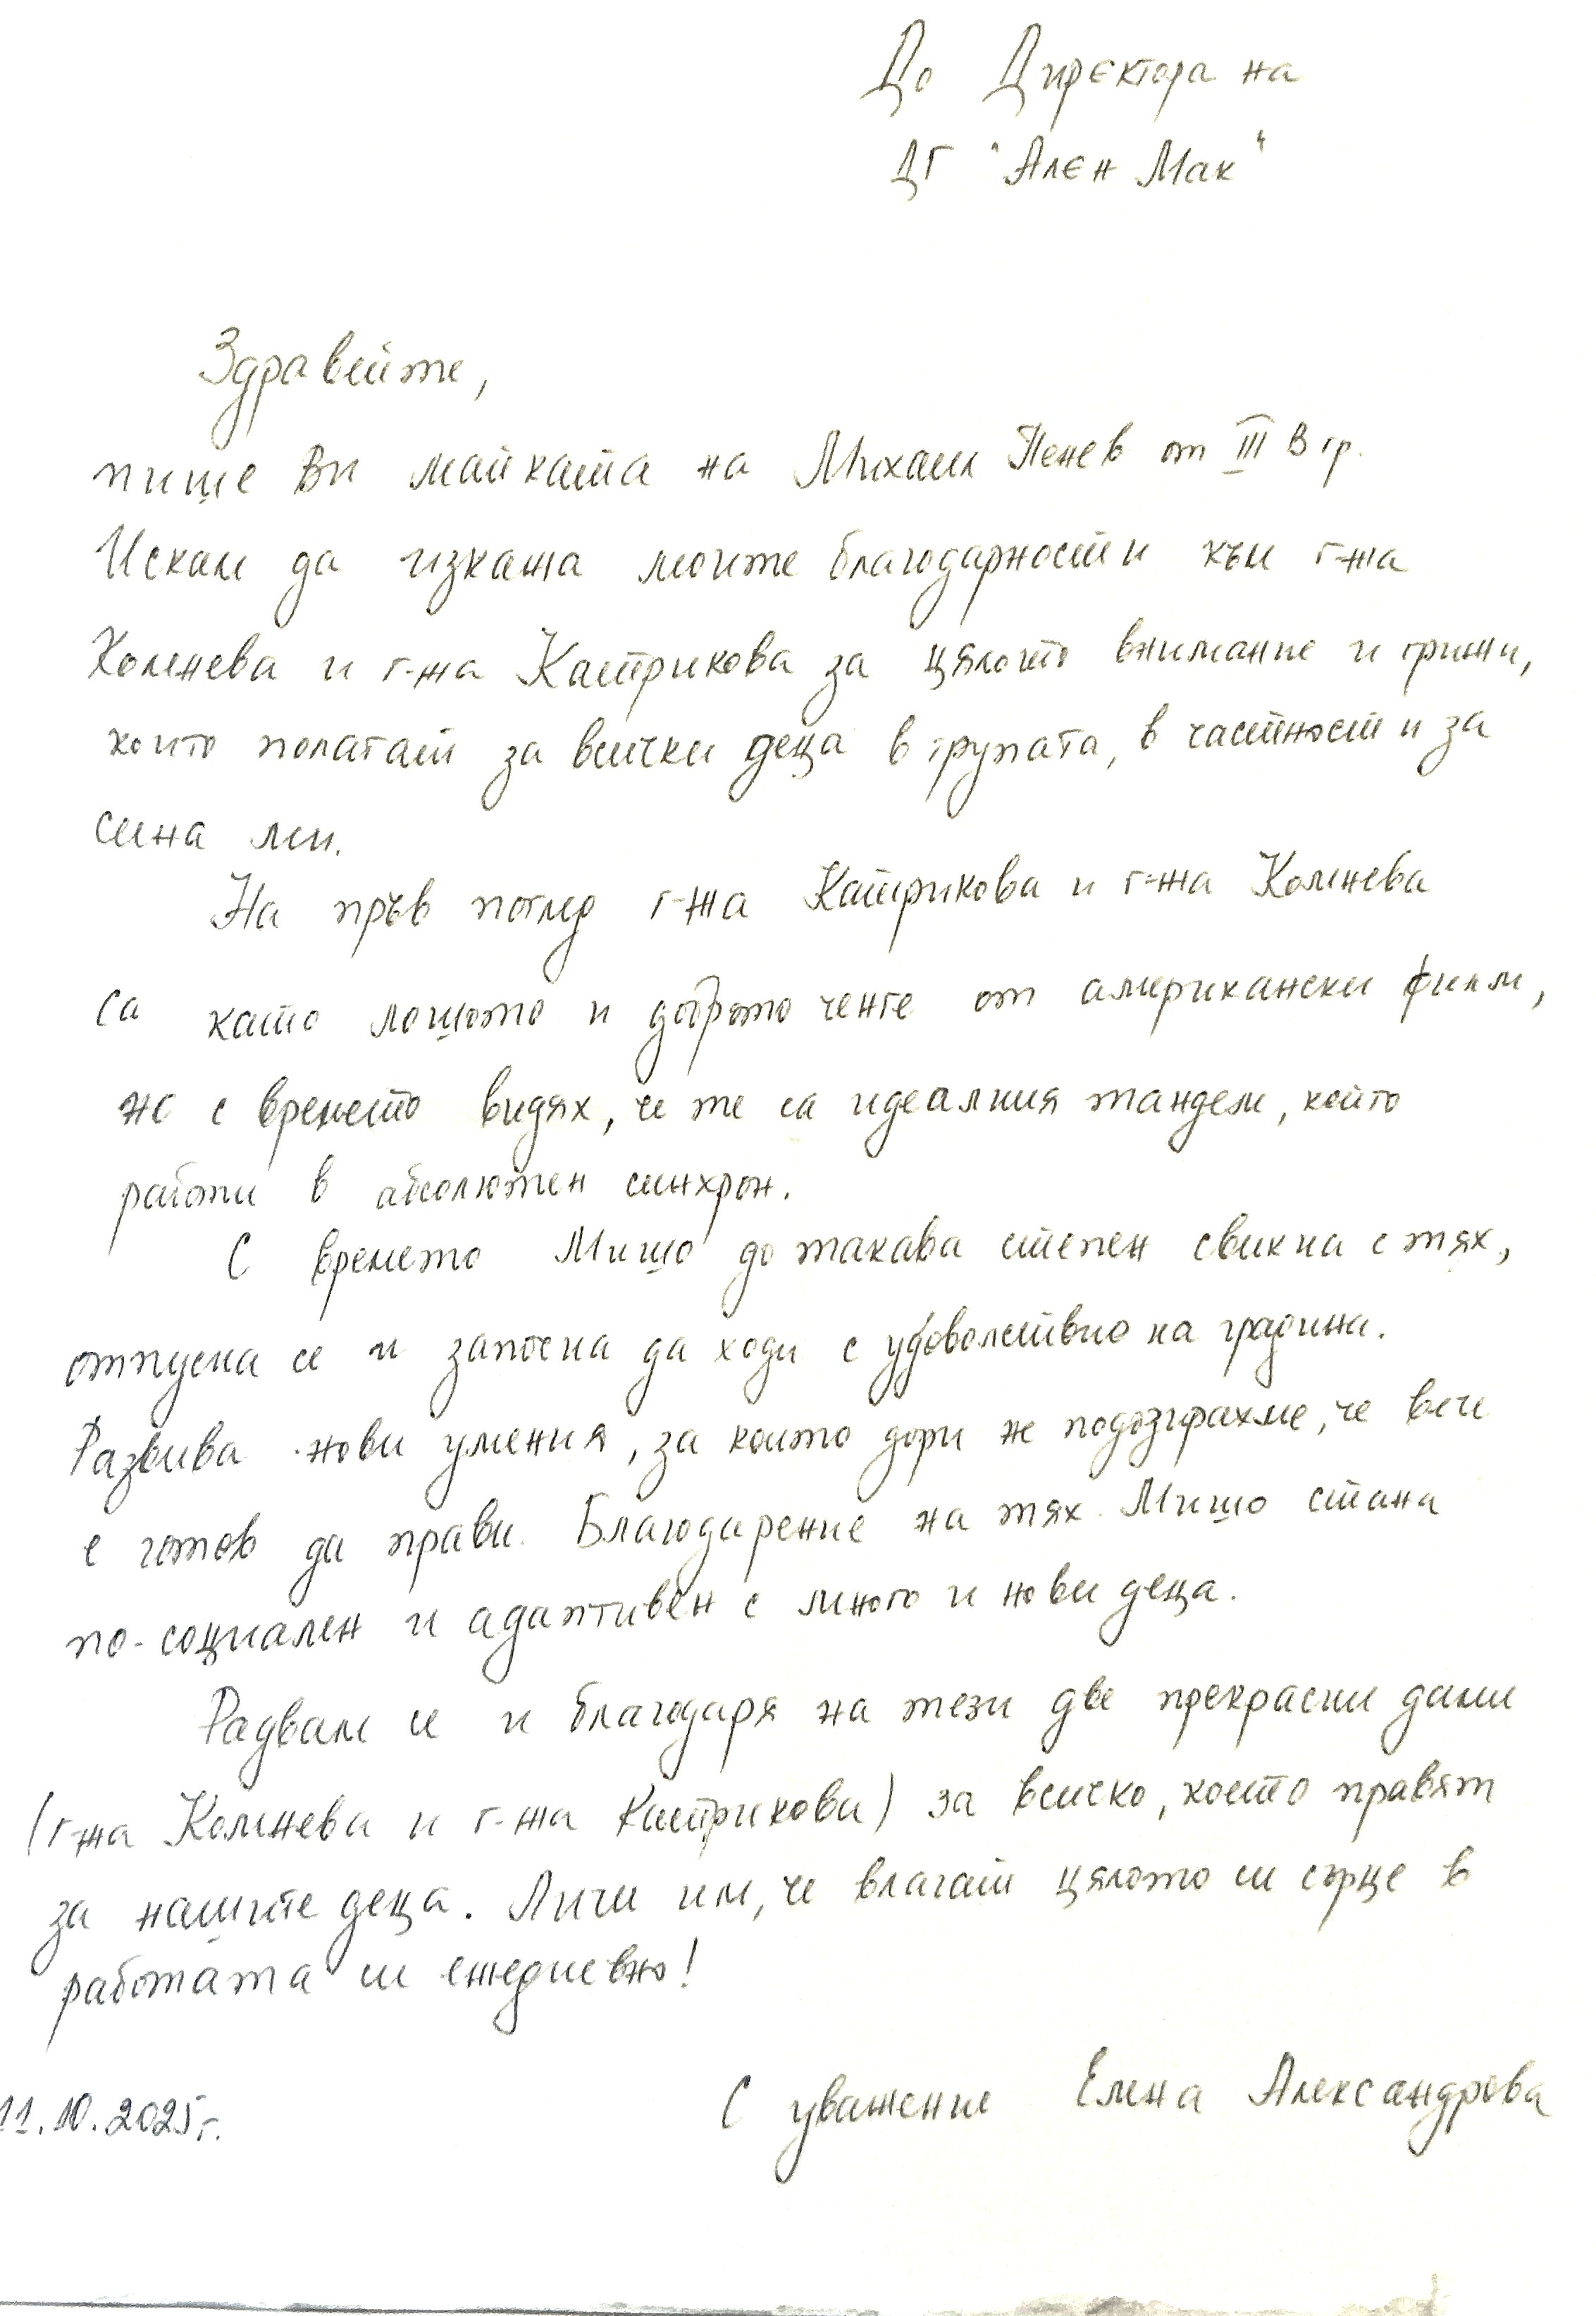 До Директора на
ДГ "Ален Мак"
Здравейте,
пише Ви майката на Михаил Пенев от III В гр.
Искам да изкажа моите благодарности към г-жа
Колчева и г-жа Катрикова за цялото внимание и грижи,
които полагат за всички деца в групата, в частност и за
сина ми.
На пръв поглед г-жа Катрикова и г-жа
са като лошото и доброто ченге от американски филм,
но с времето видях, че те са идеалния тандем, който
работи в абсолютен синхрон.
С времето Мишо до такава степен свикна с тях,
отпусна се и започна да ходи с удоволствие на градина.
Развива нови умения, за които дори не подозирахме, че вече
е готов да прави. Благодарение на тях Мишо стана
по-социален и адаптивен с много и нови деца.
Радвам се и благодаря на тези две прекрасни дами
(г-жа и г-жа Катрикова) за всичко, което правят
за нашите деца. Личи им, че влагат цялото си сърце в
работата си ежедневно!
11.10.2025г.
С уважение Елена Александрова